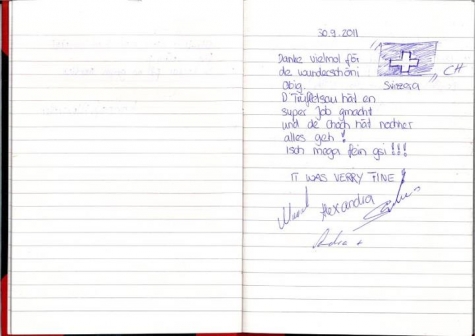 30.9.2011
Danke vielmol för
de wunderschöni
Obig.
CH
Svizzera
D'Trüffelsau hät en
super Job gmacht
und de Choch hät nochher
alles geh!
Isch mega fein gsi!!!
IT WAS VERRY FINE!
Alexandra